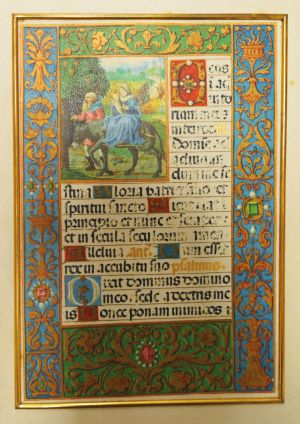 Deus
in adiuto
rium meum
intende
Domine
ad adiuvan
dum me fest
stina Gloria patri et filio et
spiritui sancto Sicut erat in
principio et nunc et semper
et in secula seculorum amen
Alleluia ant. Dum esset
rex in accubitu suo psalmus
Dixit dominus domino
meo sede a dextris me
is Donec ponam inimicos